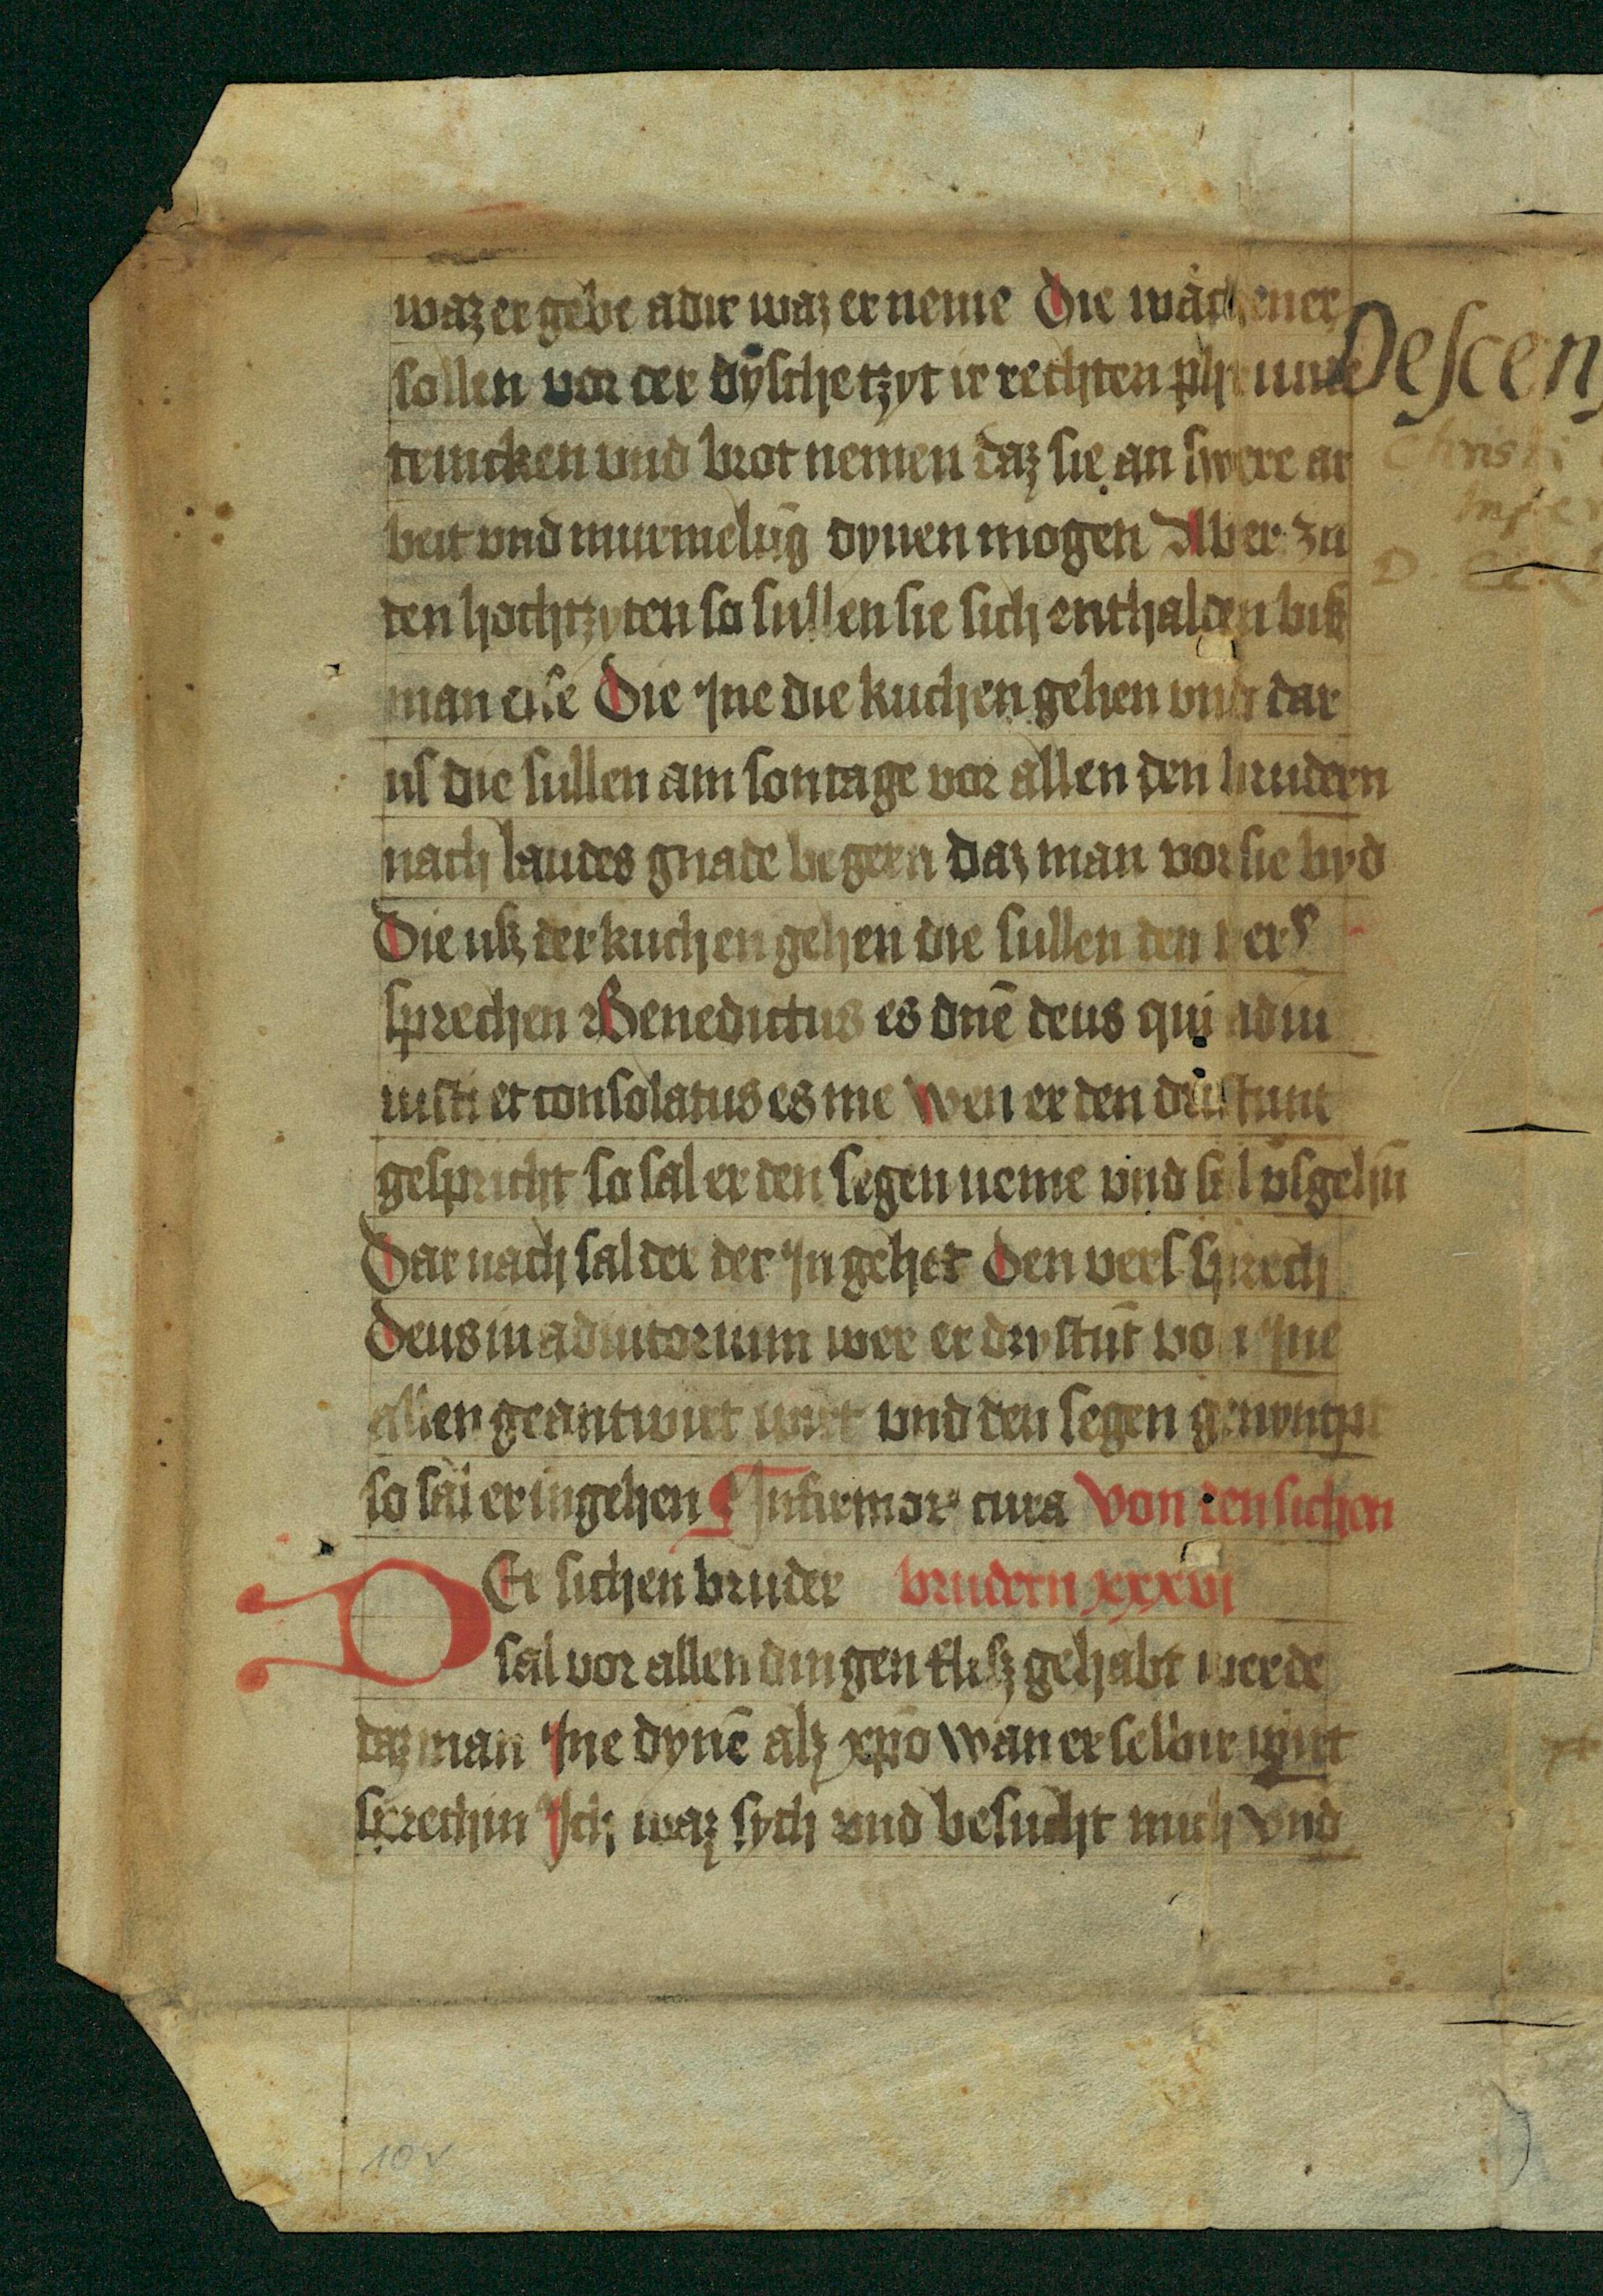 waz er gebe adir waz er neme Die wächener
sollen vor der dyschetzyt ir rechten phrunde
trincken vnd brot nemen daz sie an swere ar
beit vnd murmelūg dynen mogen Aber zu
den hochtzyten so sullen sie sich enthalden biß
man esse Die Jne die kuchen gehen vnd dar
us die sullen am sontage vor allen den brudern
nach laudes gnade begern Daz man vor sie byd
Die uß der kuchen gehen die sullen den vers
sprechen Benedictus es dnē deus qui adiu
uisti et consolatus es me Wen er den dristunt
gespricht so sal er den segen neme vnd sal vsgehn̄
Dar nach sal der der Jn gehet Den vers sprech
Deus in adiutorium wer er drystūt von Jne
allen geantwirt wirt vnd den segen genympt
so sal er ingehen Infirmor cura Von den sichen
DEr sichen bruder brudern xxxvi
sal vor allen dingen fließ gehabt werde
daz man Jne dynē alz xpō wan er selbir wirt
sprechin Ich waz sych vnd besucht mich vnd
Descen
Christi
D.
10v